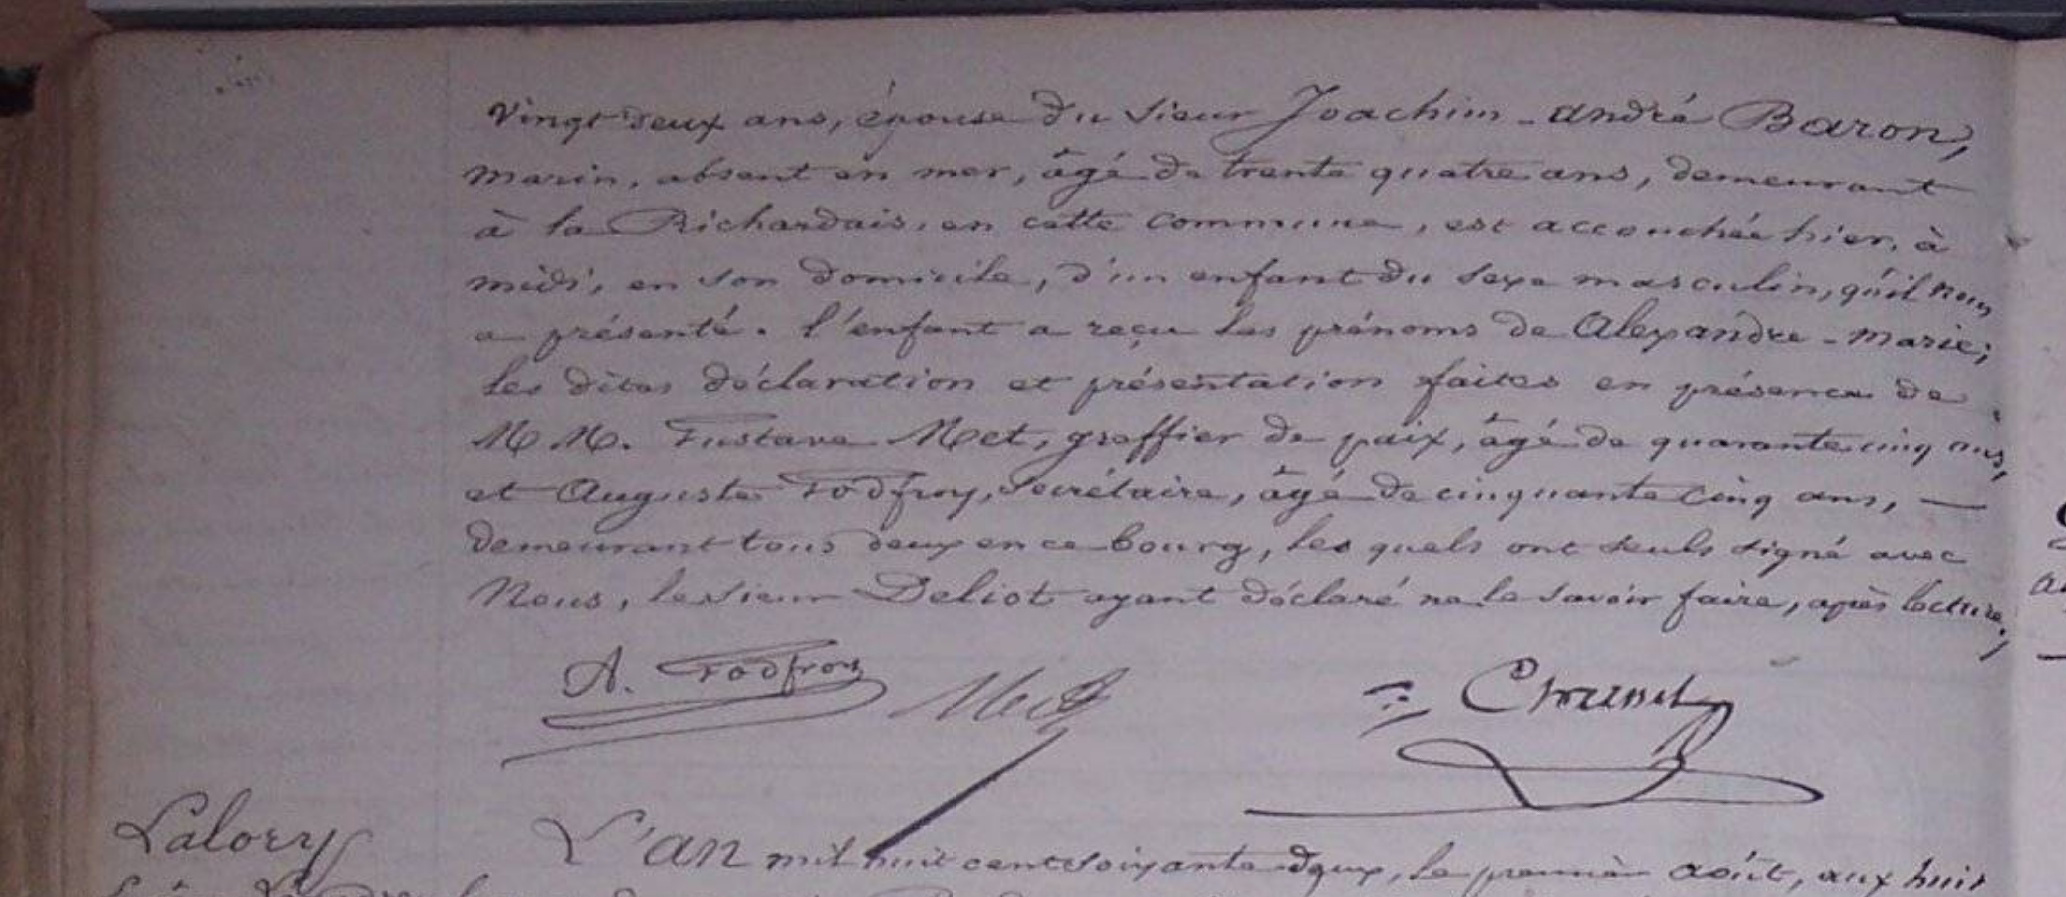 vingt deux ans, épouse du sieur Joachim-andré Baron,
marin, absent en mer, âgé de trente quatre ans, demeurant
à la Richardais, en cette commune, est accouchée hier, à
midi, en son domicile, d'un enfant du sexe masculin, qu'il nous
a présenté. l'enfant a reçu les prénoms de Alexandre-marie;
les dites déclaration et présentation faites en présence de
MM. Gustave Met, greffier de paix, âgé de quarante cinq ans,
et Auguste Godfroy, Secrétaire, âgé de cinquante cinq ans, —
demeurant tous deux en ce bourg, les quels ont seuls signé avec
Nous, le sieur Deliot ayant déclaré ne le savoir faire, après lecture;
A. Godfroy Met
Lalory L'an mil huit cent soixante deux, le premier août, aux huit